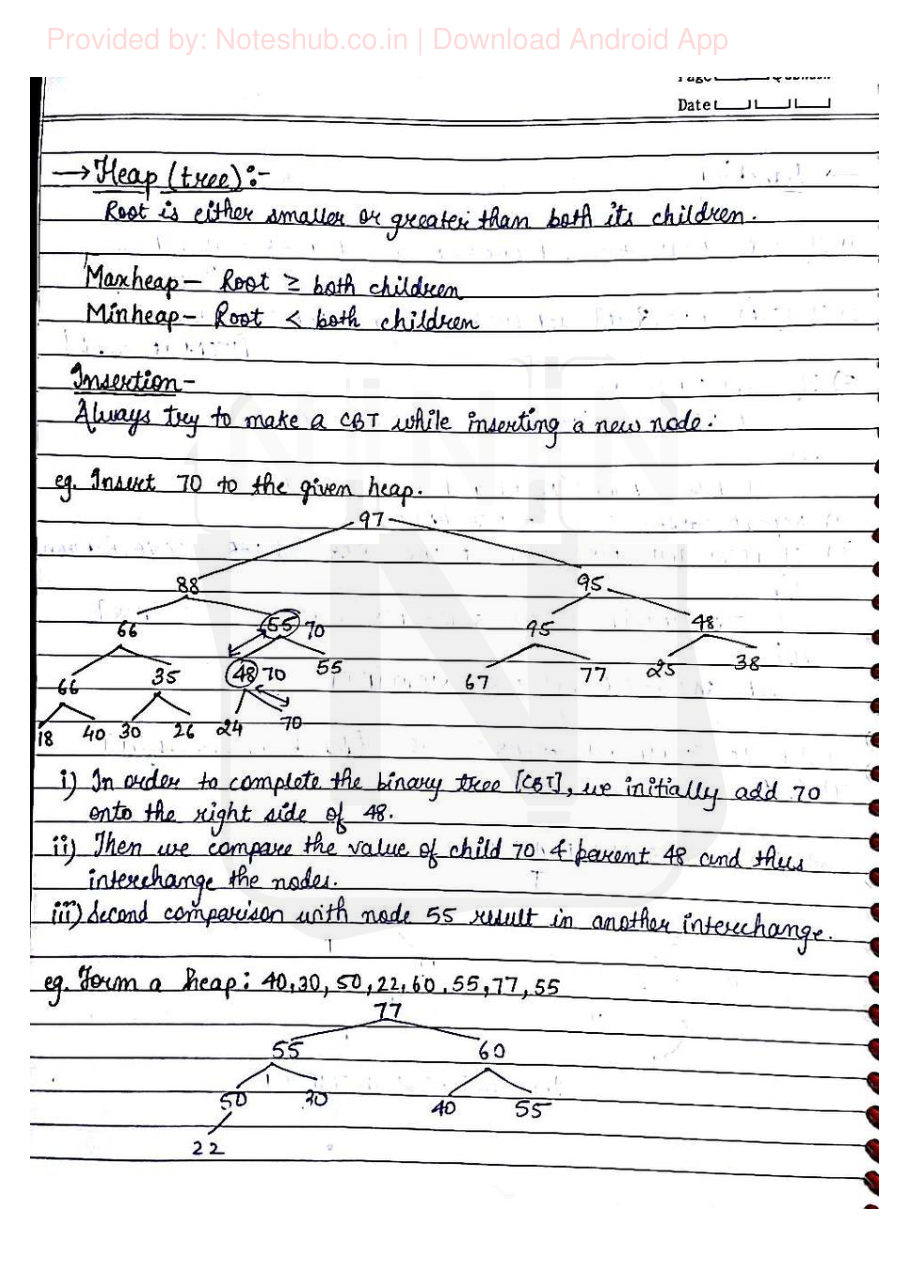 Provided by: Noteshub.co.in | Download Android App
Date
→ Heap (tree) :-
Root is either smaller or greater than both its children.
Maxheap – Root ≥ both children
Minheap – Root < both children
Insertion –
Always try to make a CBT while inserting a new node.
eg. Insert 70 to the given heap.
97
88 95
66 55 70 95 48
66 35 48 70 55 67 77 25 38
18 40 30 26 24 70
i) In order to complete the binary tree [CBT], we initially add 70
onto the right side of 48.
ii) Then we compare the value of child 70 & parent 48 and thus
interchange the nodes.
iii) Second comparison with node 55 result in another interchange.
eg. Form a heap: 40, 30, 50, 22, 60, 55, 77, 55
77
55 60
50 30 40 55
22